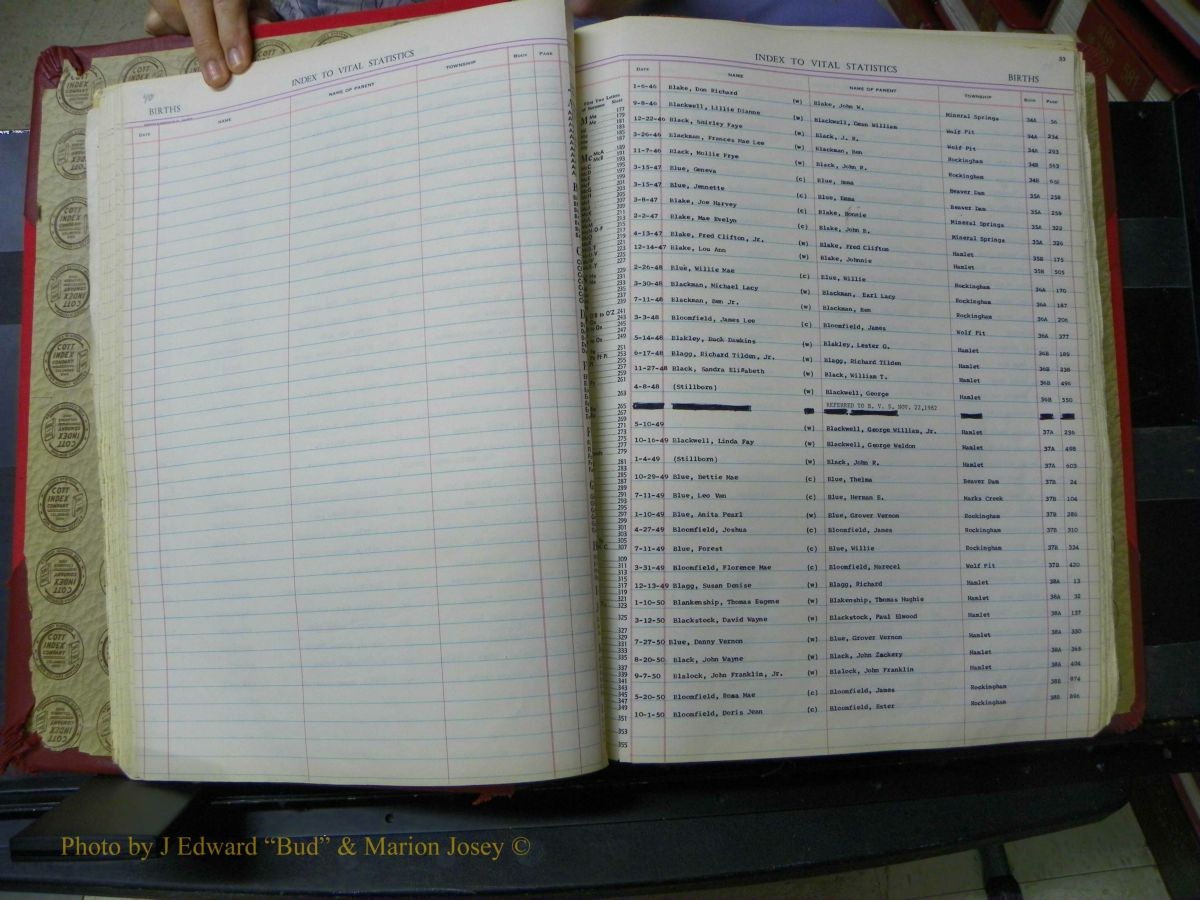 40
INDEX TO VITAL STATISTICS
BIRTHS
DATE NAME NAME OF PARENT TOWNSHIP BOOK PAGE
COTT INDEX COMPANY
33
INDEX TO VITAL STATISTICS
BIRTHS
DATE NAME NAME OF PARENT TOWNSHIP BOOK PAGE
1-6-46 Blake, Don Richard (w) Blake, John W. Mineral Springs 34A 56
9-8-46 Blackwell, Lillie Dianne (w) Blackwell, Owen William Wolf Pit 34A 234
12-22-46 Black, Shirley Faye (w) Black, J. B. Wolf Pit 34A 293
3-26-46 Blackman, Frances Mae Lee (w) Blackman, Ben Rockingham 34B 563
11-7-46 Black, Mollie Frye (w) Black, John R. Rockingham 34B
3-15-47 Blue, Geneva (c) Blue, Emma Beaver Dam 35A 258
3-15-47 Blue, Jennette (c) Blue, Emma Beaver Dam 35A 259
3-8-47 Blake, Joe Harvey (c) Blake, Bonnie Mineral Springs 35A 322
2-2-47 Blake, Mae Evelyn (c) Blake, John B. Mineral Springs 35A 326
4-13-47 Blake, Fred Clifton, Jr. (w) Blake, Fred Clifton Hamlet 35B 175
12-14-47 Blake, Lou Ann (w) Blake, Johnnie Hamlet 35B 505
2-26-48 Blue, Willie Mae (c) Blue, Willie Rockingham 36A 170
3-30-48 Blackman, Michael Lacy (w) Blackman, Earl Lacy Rockingham 36A 187
7-11-48 Blackman, Ben Jr. (w) Blackman, Ben Rockingham 36A 206
3-3-48 Bloomfield, James Lee (c) Bloomfield, James Wolf Pit 36A 377
5-14-48 Blakley, Buck Dawkins (w) Blakley, Lester G. Hamlet 36B 189
6-17-48 Blagg, Richard Tilden, Jr. (w) Blagg, Richard Tilden Hamlet 36B 238
11-27-48 Black, Sandra Elizabeth (w) Black, William T. Hamlet 36B 496
4-8-48 (Stillborn) (w) Blackwell, George Hamlet 36B 550
REFERRED TO B. V. S. NOV. 22,1982
5-10-49 (w) Blackwell, George William, Jr. Hamlet 37A 236
10-16-49 Blackwell, Linda Fay (w) Blackwell, George Weldon Hamlet 37A 498
1-4-49 (Stillborn) (w) Black, John R. Hamlet 37A 603
10-29-49 Blue, Bettie Mae (c) Blue, Thelma Beaver Dam 37B 24
7-11-49 Blue, Leo Van (c) Blue, Herman E. Marks Creek 37B 104
1-10-49 Blue, Anita Pearl (w) Blue, Grover Vernon Rockingham 37B 286
4-27-49 Bloomfield, Joshua (c) Bloomfield, James Rockingham 37B 310
7-11-49 Blue, Forest (c) Blue, Willie Rockingham 37B 334
3-31-49 Bloomfield, Florence Mae (c) Bloomfield, Marecel Wolf Pit 37B 420
12-13-49 Blagg, Susan Denise (w) Blagg, Richard Hamlet 38A 13
1-10-50 Blankenship, Thomas Eugene (w) Blakenship, Thomas Hughie Hamlet 38A 32
3-12-50 Blackstock, David Wayne (w) Blackstock, Paul Elwood Hamlet 38A 137
7-27-50 Blue, Danny Vernon (w) Blue, Grover Vernon Hamlet 38A 330
8-20-50 Black, John Wayne (w) Black, John Zackery Hamlet 38A 365
9-7-50 Blalock, John Franklin, Jr. (w) Blalock, John Franklin Hamlet 38A 404
5-20-50 Bloomfield, Rosa Mae (c) Bloomfield, James Rockingham 38B 874
10-1-50 Bloomfield, Doris Jean (c) Bloomfield, Ester Rockingham 38B 896
Photo by J Edward “Bud” & Marion Josey ©